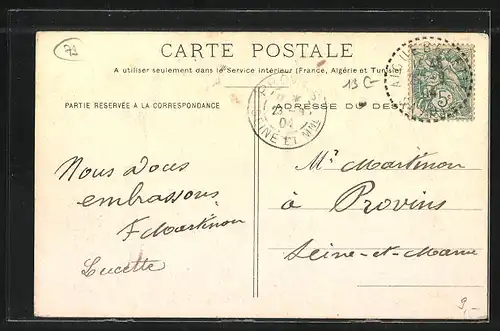 73
CARTE POSTALE
A utiliser seulement dans le Service intérieur (France, Algérie et Tunisie)
13 €
PARTIE RESERVÉE A LA CORRESPONDANCE
ADRESSE DU DES
PROVINS
04
SEINE ET MNE
5c
Nous vous
embrassons
F Martinon
Lucette
Mr Martinon
à Provins
Seine-et-Marne
9,-